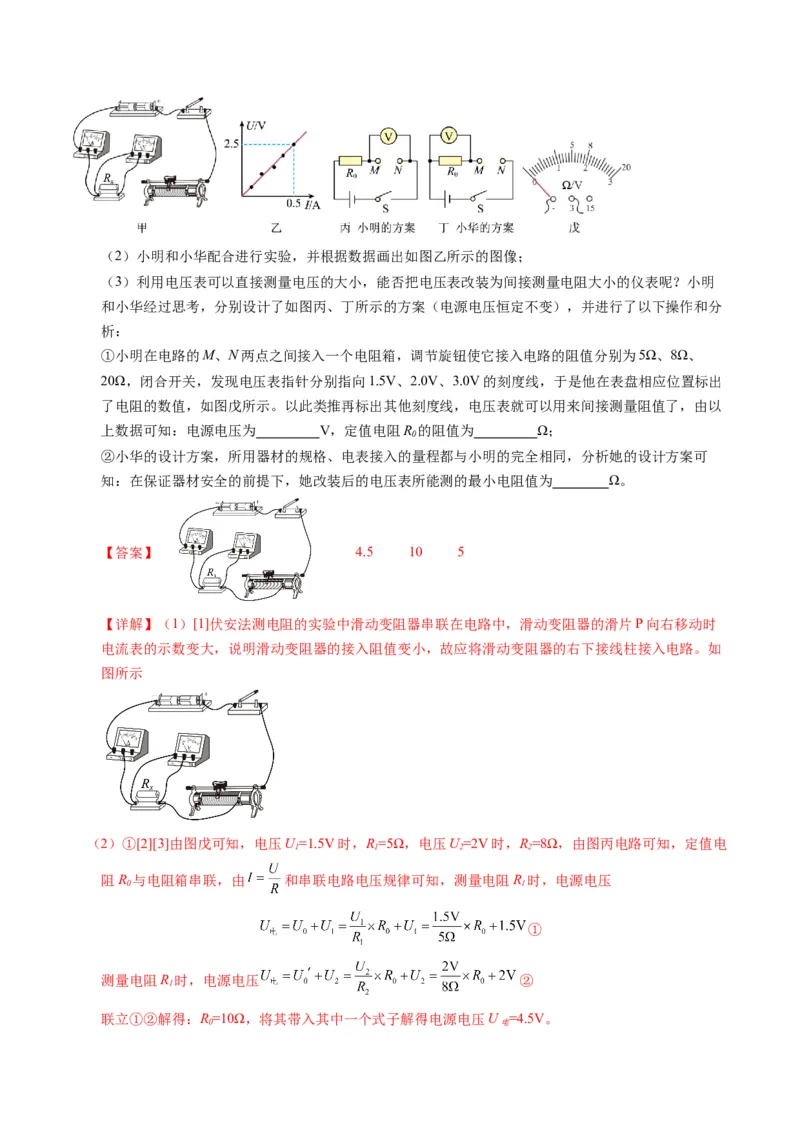 U/V
2.5
0.5 I/A
Rx
V
R₀ M N
S
V
R₀ M N
S
5 8
0 1 2 3 20
Ω/V
- 3 15
甲 乙 丙 小明的方案 丁 小华的方案 戊
(2)小明和小华配合进行实验，并根据数据画出如图乙所示的图像；
(3)利用电压表可以直接测量电压的大小，能否把电压表改装为间接测量电阻大小的仪表呢？小明
和小华经过思考，分别设计了如图丙、丁所示的方案（电源电压恒定不变），并进行了以下操作和分
析：
①小明在电路的M、N两点之间接入一个电阻箱，调节旋钮使它接入电路的阻值分别为5Ω、8Ω、
20Ω，闭合开关，发现电压表指针分别指向1.5V、2.0V、3.0V的刻度线，于是他在表盘相应位置标出
了电阻的数值，如图戊所示。以此类推再标出其他刻度线，电压表就可以用来间接测量阻值了，由以
上数据可知：电源电压为_________V，定值电阻R₀的阻值为_________Ω；
②小华的设计方案，所用器材的规格、电表接入的量程都与小明的完全相同，分析她的设计方案可
知：在保证器材安全的前提下，她改装后的电压表所能测的最小电阻值为________Ω。
Rx
【答案】 4.5 10 5
【详解】（1）[1]伏安法测电阻的实验中滑动变阻器串联在电路中，滑动变阻器的滑片P向右移动时
电流表的示数变大，说明滑动变阻器的接入阻值变小，故应将滑动变阻器的右下接线柱接入电路。如
图所示
Rx
（2）①[2][3]由图戊可知，电压U₁=1.5V时，R₁=5Ω，电压U₂=2V时，R₂=8Ω，由图丙电路可知，定值电
阻R₀与电阻箱串联，由 I = U/R 和串联电路电压规律可知，测量电阻R₁时，电源电压
U电 = U₀ + U₁ = U₁/R₁ × R₀ + U₁ = 1.5V/5Ω × R₀ + 1.5V①
测量电阻R₁时，电源电压U电 = U₀′ + U₂ = U₂/R₂ × R₀ + U₂ = 2V/8Ω × R₀ + 2V ②
联立①②解得：R₀=10Ω，将其带入其中一个式子解得电源电压U电=4.5V。